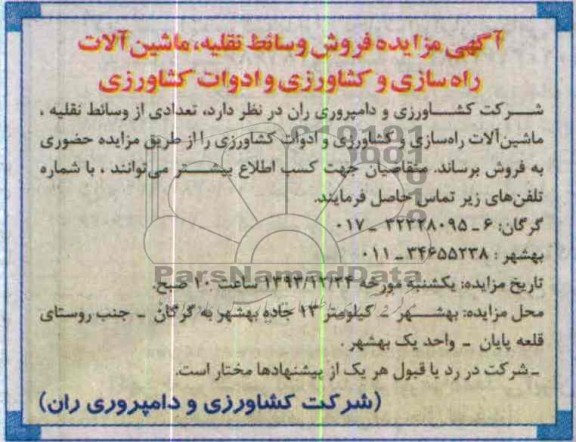 آگهی مزایده فروش وسائط نقلیه، ماشین آلات
راه سازی و کشاورزی و ادوات کشاورزی
شرکت کشاورزی و دامپروری ران در نظر دارد، تعدادی از وسائط نقلیه ،
ماشین‌آلات راه‌سازی و کشاورزی و ادوات کشاورزی را از طریق مزایده حضوری
به فروش برساند. متقاضیان جهت کسب اطلاع بیشتر می‌توانند ، با شماره
تلفن‌های زیر تماس حاصل فرمایند.
گرگان: ۶ ـ ۳۲۳۲۸۰۹۵ ـ ۰۱۷
بهشهر : ۳۴۶۵۵۲۳۸ ـ ۰۱۱
ParsNamadData
تاریخ مزایده: یکشنبه مورخه ۱۳۹۳/۱۲/۲۴ ساعت ۱۰ صبح.
محل مزایده: بهشهر ـ کیلومتر ۱۳ جاده بهشهر به گرگان ـ جنب روستای
قلعه پایان ـ واحد یک بهشهر .
ـ شرکت در رد یا قبول هر یک از پیشنهادها مختار است.
(شرکت کشاورزی و دامپروری ران)